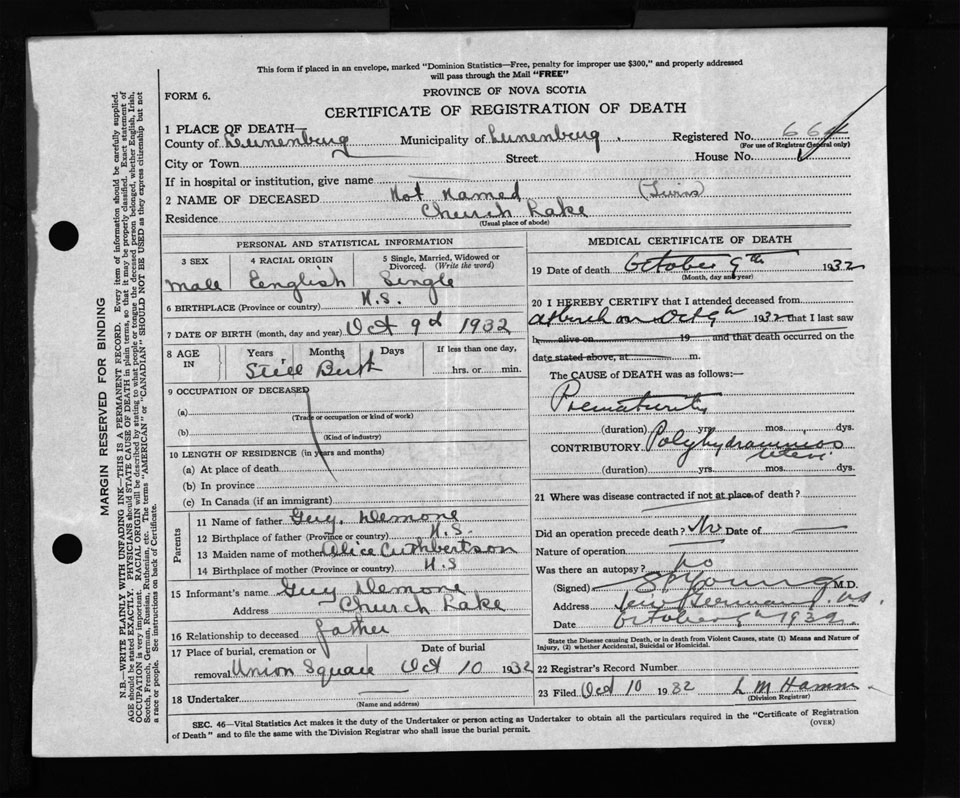 This form if placed in an envelope, marked "Dominion Statistics—Free, penalty for improper use $300," and properly addressed
will pass through the Mail "FREE"
FORM 6.
PROVINCE OF NOVA SCOTIA
CERTIFICATE OF REGISTRATION OF DEATH
1 PLACE OF DEATH—
County of Lunenburg Municipality of Lunenburg. Registered No. 664
(For use of Registrar General only)
City or Town Street House No.
If in hospital or institution, give name
2 NAME OF DECEASED Not Named (Twins)
Residence Church Lake
(Usual place of abode)
PERSONAL AND STATISTICAL INFORMATION
3 SEX 4 RACIAL ORIGIN 5 Single, Married, Widowed or
Divorced. (Write the word)
Male English Single
6 BIRTHPLACE (Province or country) N.S.
7 DATE OF BIRTH (month, day and year) Oct 9d 1932
8 AGE IN Years Months Days If less than one day,
Still Birth hrs. or min.
9 OCCUPATION OF DECEASED
(a)
(Trade or occupation or kind of work)
(b)
(Kind of industry)
10 LENGTH OF RESIDENCE (in years and months)
(a) At place of death
(b) In province
(c) In Canada (if an immigrant)
Parents
11 Name of father Guy. Demone
12 Birthplace of father (Province or country) N.S.
13 Maiden name of mother Alice Cuthbertson
14 Birthplace of mother (Province or country) N.S
15 Informant's name Guy Demone
Address Church Lake
16 Relationship to deceased father
17 Place of burial, cremation or Date of burial
removal Union Square Oct 10 1932
18 Undertaker
(Name and address)
MEDICAL CERTIFICATE OF DEATH
19 Date of death October 9th 1932
(Month, day and year)
20 I HEREBY CERTIFY that I attended deceased from
at birth on Oct 9th 1932 that I last saw
h alive on 19 and that death occurred on the
date stated above, at m.
The CAUSE of DEATH was as follows:—
Prematurity
(duration) yrs. mos. dys.
CONTRIBUTORY Polyhydramnios
uteri
(duration) yrs. mos. dys.
21 Where was disease contracted if not at place of death?
Did an operation precede death? No Date of
Nature of operation
Was there an autopsy? no
(Signed) Young M.D.
Address N.S.
Date October 9th 1932
State the Disease causing Death, or in death from Violent Causes, state (1) Means and Nature of
Injury, (2) whether Accidental, Suicidal or Homicidal.
22 Registrar's Record Number
23 Filed Oct 10 1932 L M Hamm
(Division Registrar)
SEC. 46—Vital Statistics Act makes it the duty of the Undertaker or person acting as Undertaker to obtain all the particulars required in the "Certificate of Registration
of Death" and to file the same with the Division Registrar who shall issue the burial permit.
(OVER)
MARGIN RESERVED FOR BINDING
N.B.—WRITE PLAINLY WITH UNFADING INK—THIS IS A PERMANENT RECORD. Every item of information should be carefully supplied.
AGE should be stated EXACTLY. PHYSICIANS should STATE CAUSE OF DEATH in plain terms, so that it may be properly classified. Exact statement of
OCCUPATION is very important. RACIAL ORIGIN will be described by stating to what people or tongue the deceased person belonged, whether English, Irish,
Scotch, French, German, Russian, Ruthenian, etc. The terms "AMERICAN" or "CANADIAN" SHOULD NOT BE USED as they express citizenship but not
a race or people. See instructions on back of Certificate.